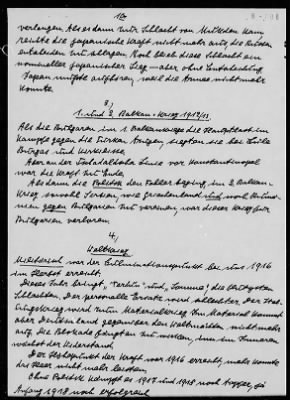 10
verlangen. Als er dann zur Schlacht von Mukden kam
reichte die japanische Kraft nicht mehr aus, die Russen
entscheidend zu schlagen. Noch blieb diese Schlacht ein
nomineller japanischer Sieg – aber ohne Entscheidung.
Japan musste aufhören, weil die Armee nicht mehr
konnte.
3/
1. und 2. Balkan-Krieg 1912/13.
Als die Bulgaren im 1. Balkankriege die Hauptlast im
Kampfe gegen die Türken trugen, siegten sie bei Lüle
Burgas und Kirkilisse.
Aber an der Tschadaldscha Linie vor Konstantinopel
war die Kraft zu Ende.
Als dann die Politik den Fehler beging, im 2. Balkan-
Krieg sowohl Serbien, wie Griechenland und noch Rumä-
nien gegen Bulgarien zu vereinen, war dieser Krieg für
Bulgarien verloren.
4/
Weltkrieg
Militärisch war der Culminationspunkt bei uns 1916
im Herbst erreicht.
Dieses Jahr bringt „Verdun" und „Somme", die blutigsten
Schlachten. Der personelle Ersatz wird schlechter. Der
wird zum Materialkrieg. Im Material kommt
aber Deutschland gegenüber den Weltmächten nicht mehr
auf. Die Blockade beginnt zu wirken, und im Inneren
wächst der Widerstand.
Der Höhepunkt der Kraft war 1916 erreicht, mehr konnte
das Heer nicht mehr leisten.
Ohne Politik kämpft es 1917 und 1918 noch, ja
Anfang 1918 noch erfolgreich